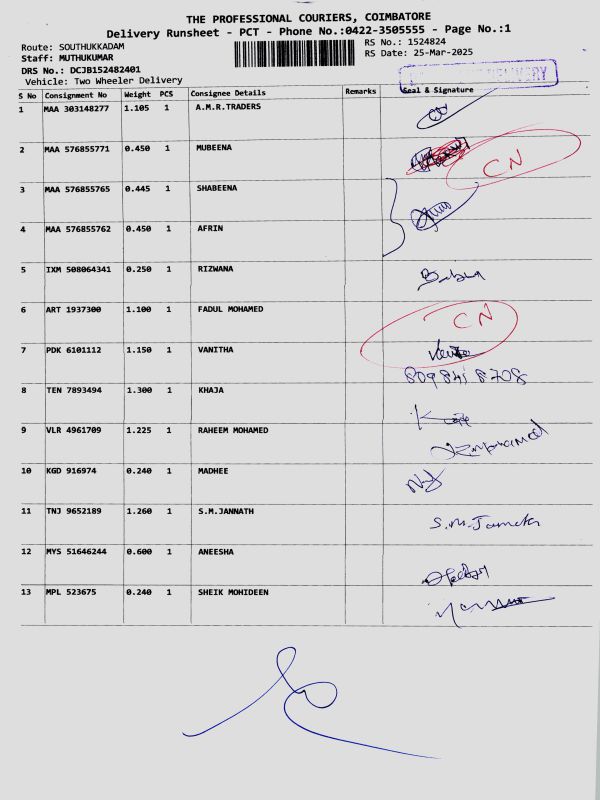 THE PROFESSIONAL COURIERS, COIMBATORE
Delivery Runsheet - PCT - Phone No.:0422-3505555 - Page No.:1
Route: SOUTHUKKADAM
RS No.: 1524824
Staff: MUTHUKUMAR
RS Date: 25-Mar-2025
DRS No.: DCJB152482401
Vehicle: Two Wheeler Delivery
DELIVERY
S No Consignment No Weight PCS Consignee Details Remarks Seal & Signature
1 MAA 303148277 1.105 1 A.M.R.TRADERS
2 MAA 576855771 0.450 1 MUBEENA CN
3 MAA 576855765 0.445 1 SHABEENA
4 MAA 576855762 0.450 1 AFRIN
5 IXM 508064341 0.250 1 RIZWANA
6 ART 1937300 1.100 1 FADUL MOHAMED CN
7 PDK 6101112 1.150 1 VANITHA
8 TEN 7893494 1.300 1 KHAJA
9 VLR 4961709 1.225 1 RAHEEM MOHAMED
10 KGD 916974 0.240 1 MADHEE
11 TNJ 9652189 1.260 1 S.M.JANNATH
12 MYS 51646244 0.600 1 ANEESHA
13 MPL 523675 0.240 1 SHEIK MOHIDEEN